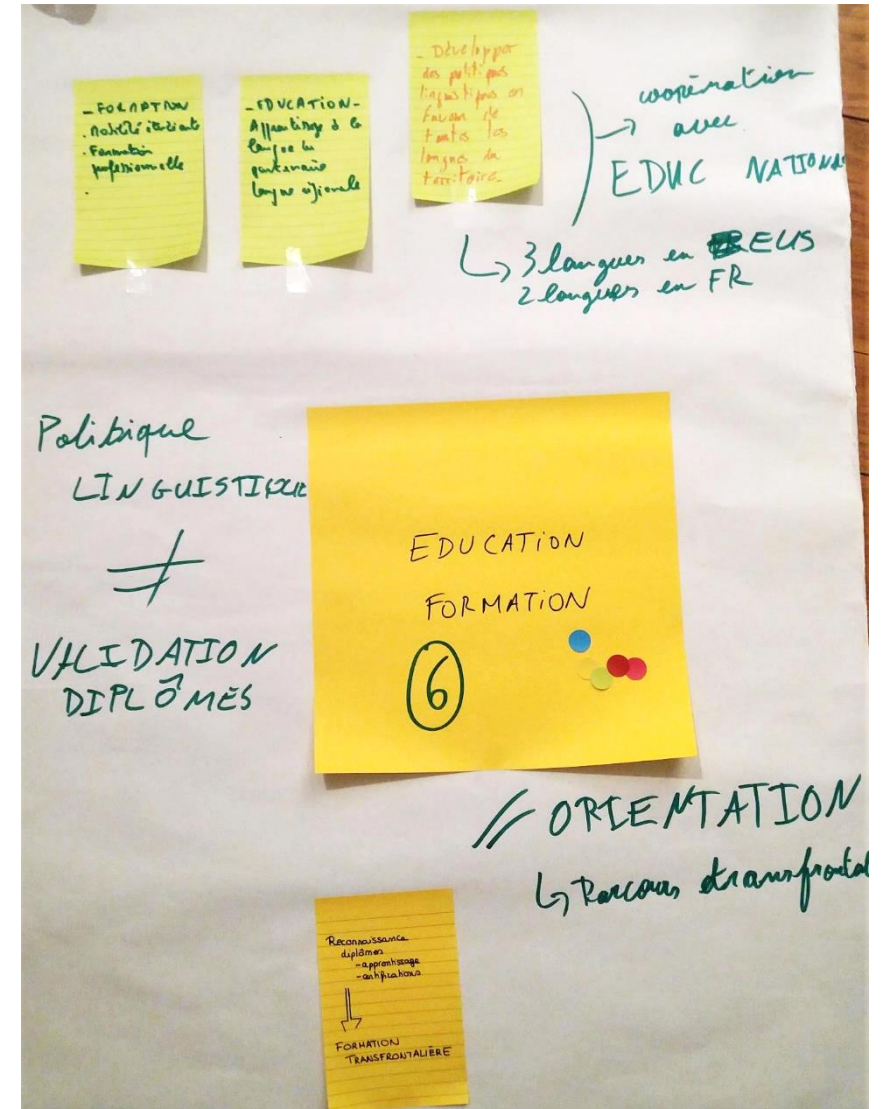 - FORMATION
. Mobilité étudiante
. Formation
professionnelle
.
- EDUCATION -
Apprentissage de la
langue du
partenaire
langue régionale
- Développer
des politiques
linguistiques en
faveur de
toutes les
langues du
territoire.
→ coopération
avec
EDUC NATIONA
↳ 3 langues en EUS
2 langues en FR
Politique
LINGUISTIQUE
≠
VALIDATION
DIPLÔMES
EDUCATION
FORMATION
6
// ORIENTATION
↳ Parcours transfrontal
Reconnaissance
diplômes
- apprentissage
- certifications
⇓
FORMATION
TRANSFRONTALIÈRE